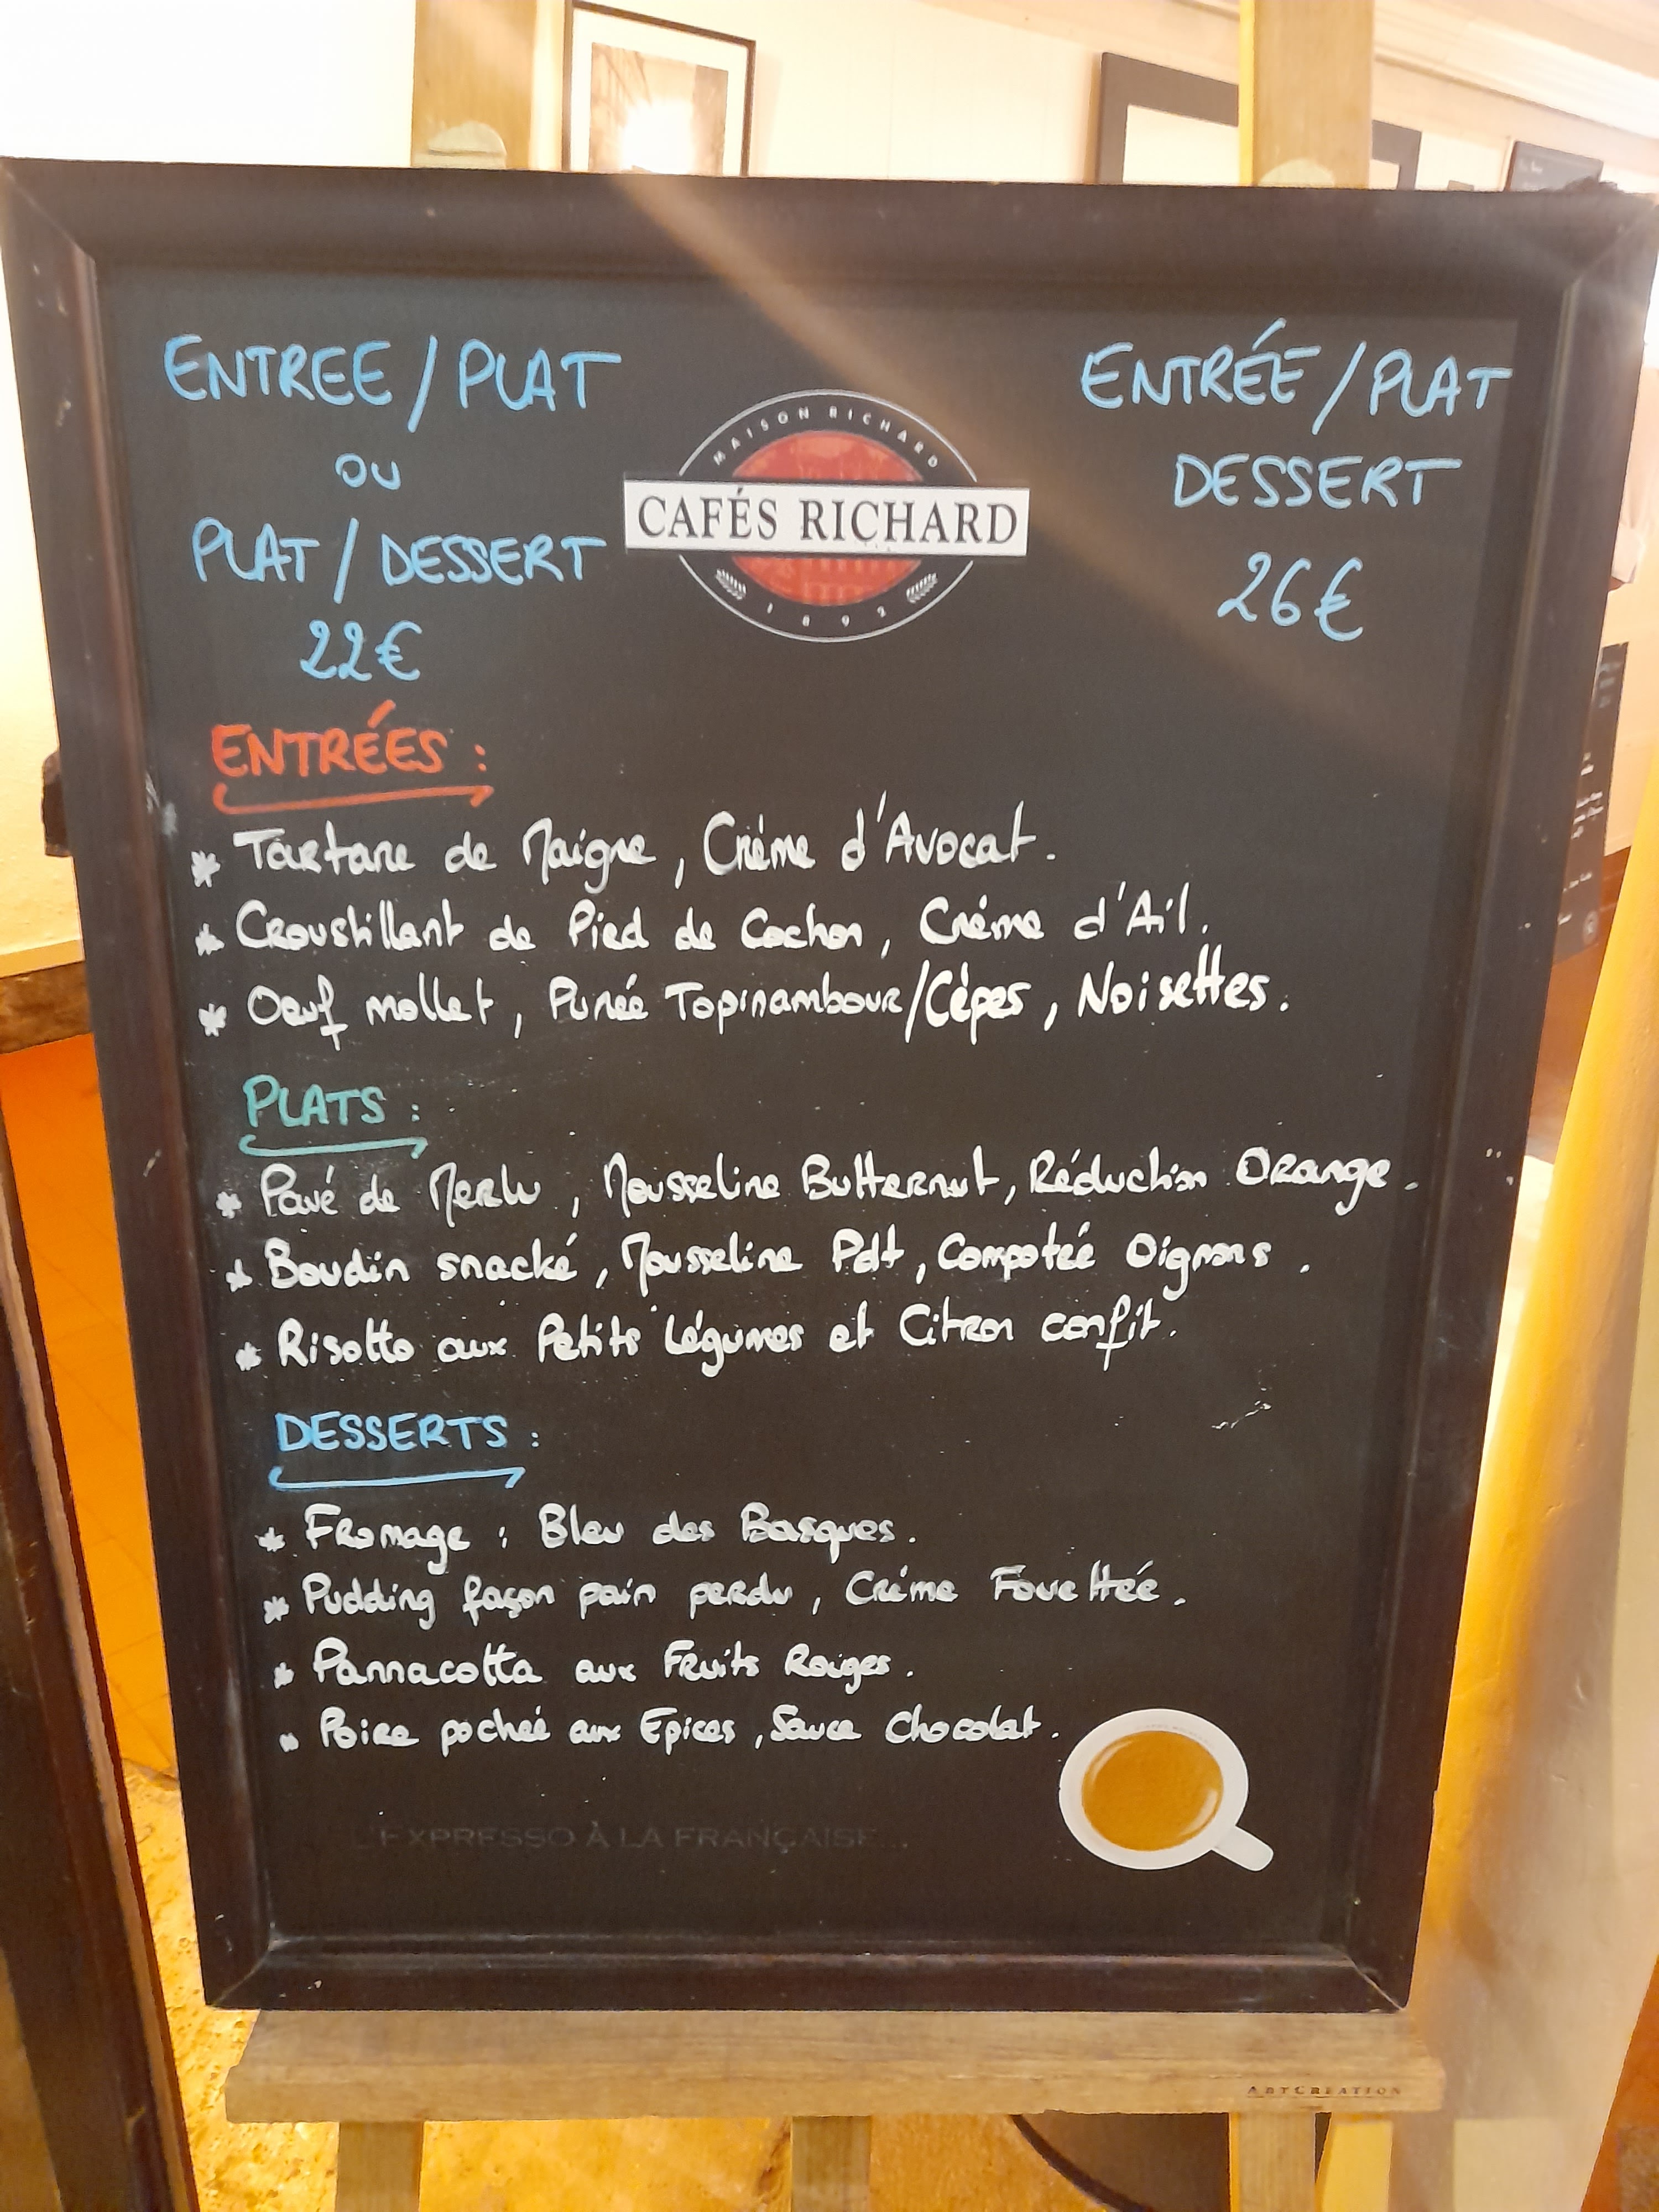 ENTREE / PLAT
OU
PLAT / DESSERT
22€
MAISON RICHARD
CAFÉS RICHARD
1892
ENTRÉE / PLAT
DESSERT
26€
ENTRÉES :
* Tartare de Maigre, Crème d'Avocat.
* Croustillant de Pied de Cochon, Crème d'Ail.
* Oeuf mollet, Purée Topinambour/Cèpes, Noisettes.
PLATS :
* Pavé de Merlu, Mousseline Butternut, Réduction Orange.
* Boudin snacké, Mousseline Pdt, Compotée Oignons.
* Risotto aux Petits Légumes et Citron confit.
DESSERTS :
* Fromage : Bleu des Basques.
* Pudding façon pain perdu, Crème Fouettée.
* Pannacotta aux Fruits Rouges.
* Poire pochée aux Epices, Sauce Chocolat.
L'EXPRESSO À LA FRANÇAISE...
ARTCREATION